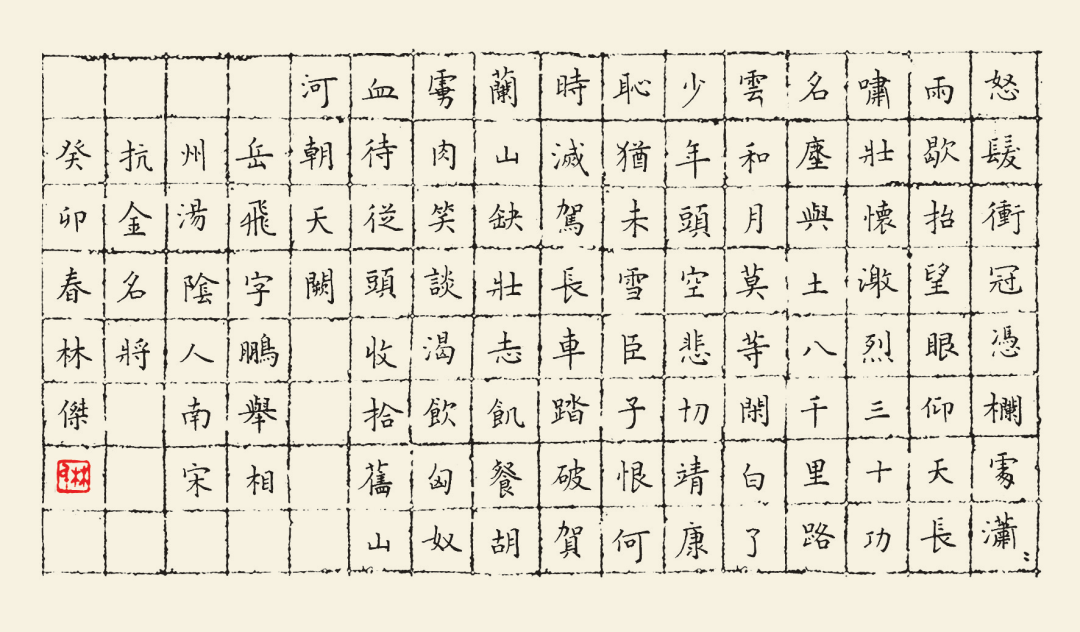 怒髮衝冠憑欄處瀟〻
雨歇抬望眼仰天長
嘯壯懷激烈三十功
名塵與土八千里路
雲和月莫等閑白了
少年頭空悲切靖康
恥猶未雪臣子恨何
時滅駕長車踏破賀
蘭山缺壯志飢餐胡
虜肉笑談渴飲匈奴
血待從頭收拾舊山
河朝天闕
岳飛字鵬舉相
州湯陰人南宋
抗金名將
癸卯春林傑